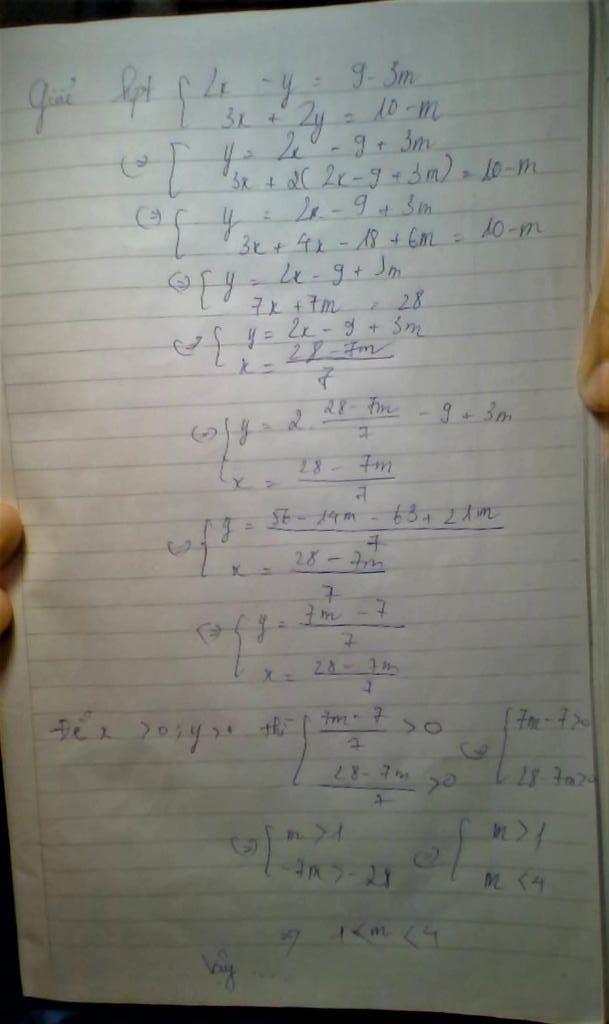 Giải hpt { 2x - y = 9 - 3m
3x + 2y = 10 - m
<=> { y = 2x - 9 + 3m
3x + 2(2x - 9 + 3m) = 10 - m
<=> { y = 2x - 9 + 3m
3x + 4x - 18 + 6m = 10 - m
<=> { y = 2x - 9 + 3m
7x + 7m = 28
<=> { y = 2x - 9 + 3m
x = (28 - 7m)/7
<=> { y = 2. (28 - 7m)/7 - 9 + 3m
x = (28 - 7m)/7
<=> { y = (56 - 14m - 63 + 21m)/7
x = (28 - 7m)/7
<=> { y = (7m - 7)/7
x = (28 - 7m)/7
Để x > 0 ; y > 0 thì { (7m - 7)/7 > 0 <=> { 7m - 7 > 0
(28 - 7m)/7 > 0 28 - 7m >
<=> { m > 1 <=> { m > 1
-7m > -28 m < 4
=> 1 < m < 4
Vậy ...